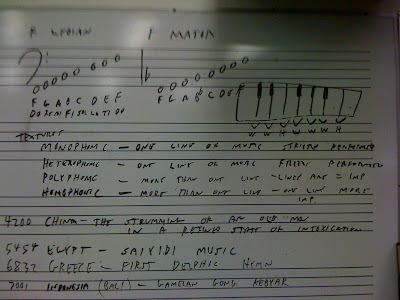 F LYDIAN F MAJOR
F G A B C D E F F G A B C D E F
DO RE MI FI SOL LA TI DO W W W H W W H
TEXTURES
MONOPHONIC – ONE LINE OF MUSIC STRICTLY PERFORMED
HETEROPHONIC – ONE LINE OF MUSIC FREELY PERFORMED
POLYPHONIC – MORE THAN ONE LINE – LINES ARE = IMP
HOMOPHONIC – MORE THAN ONE LINE – ONE LINE MORE
IMP.
4200 CHINA – THE STRUMMING OF AN OLD MAN
IN A STATE OF INTOXICATION
5454 EGYPT – SAIYIDI MUSIC
6832 GREECE – FIRST DELPHIC HYMN
7001 INDONESIA (BALI) – GAMELAN GONG KEBYAR